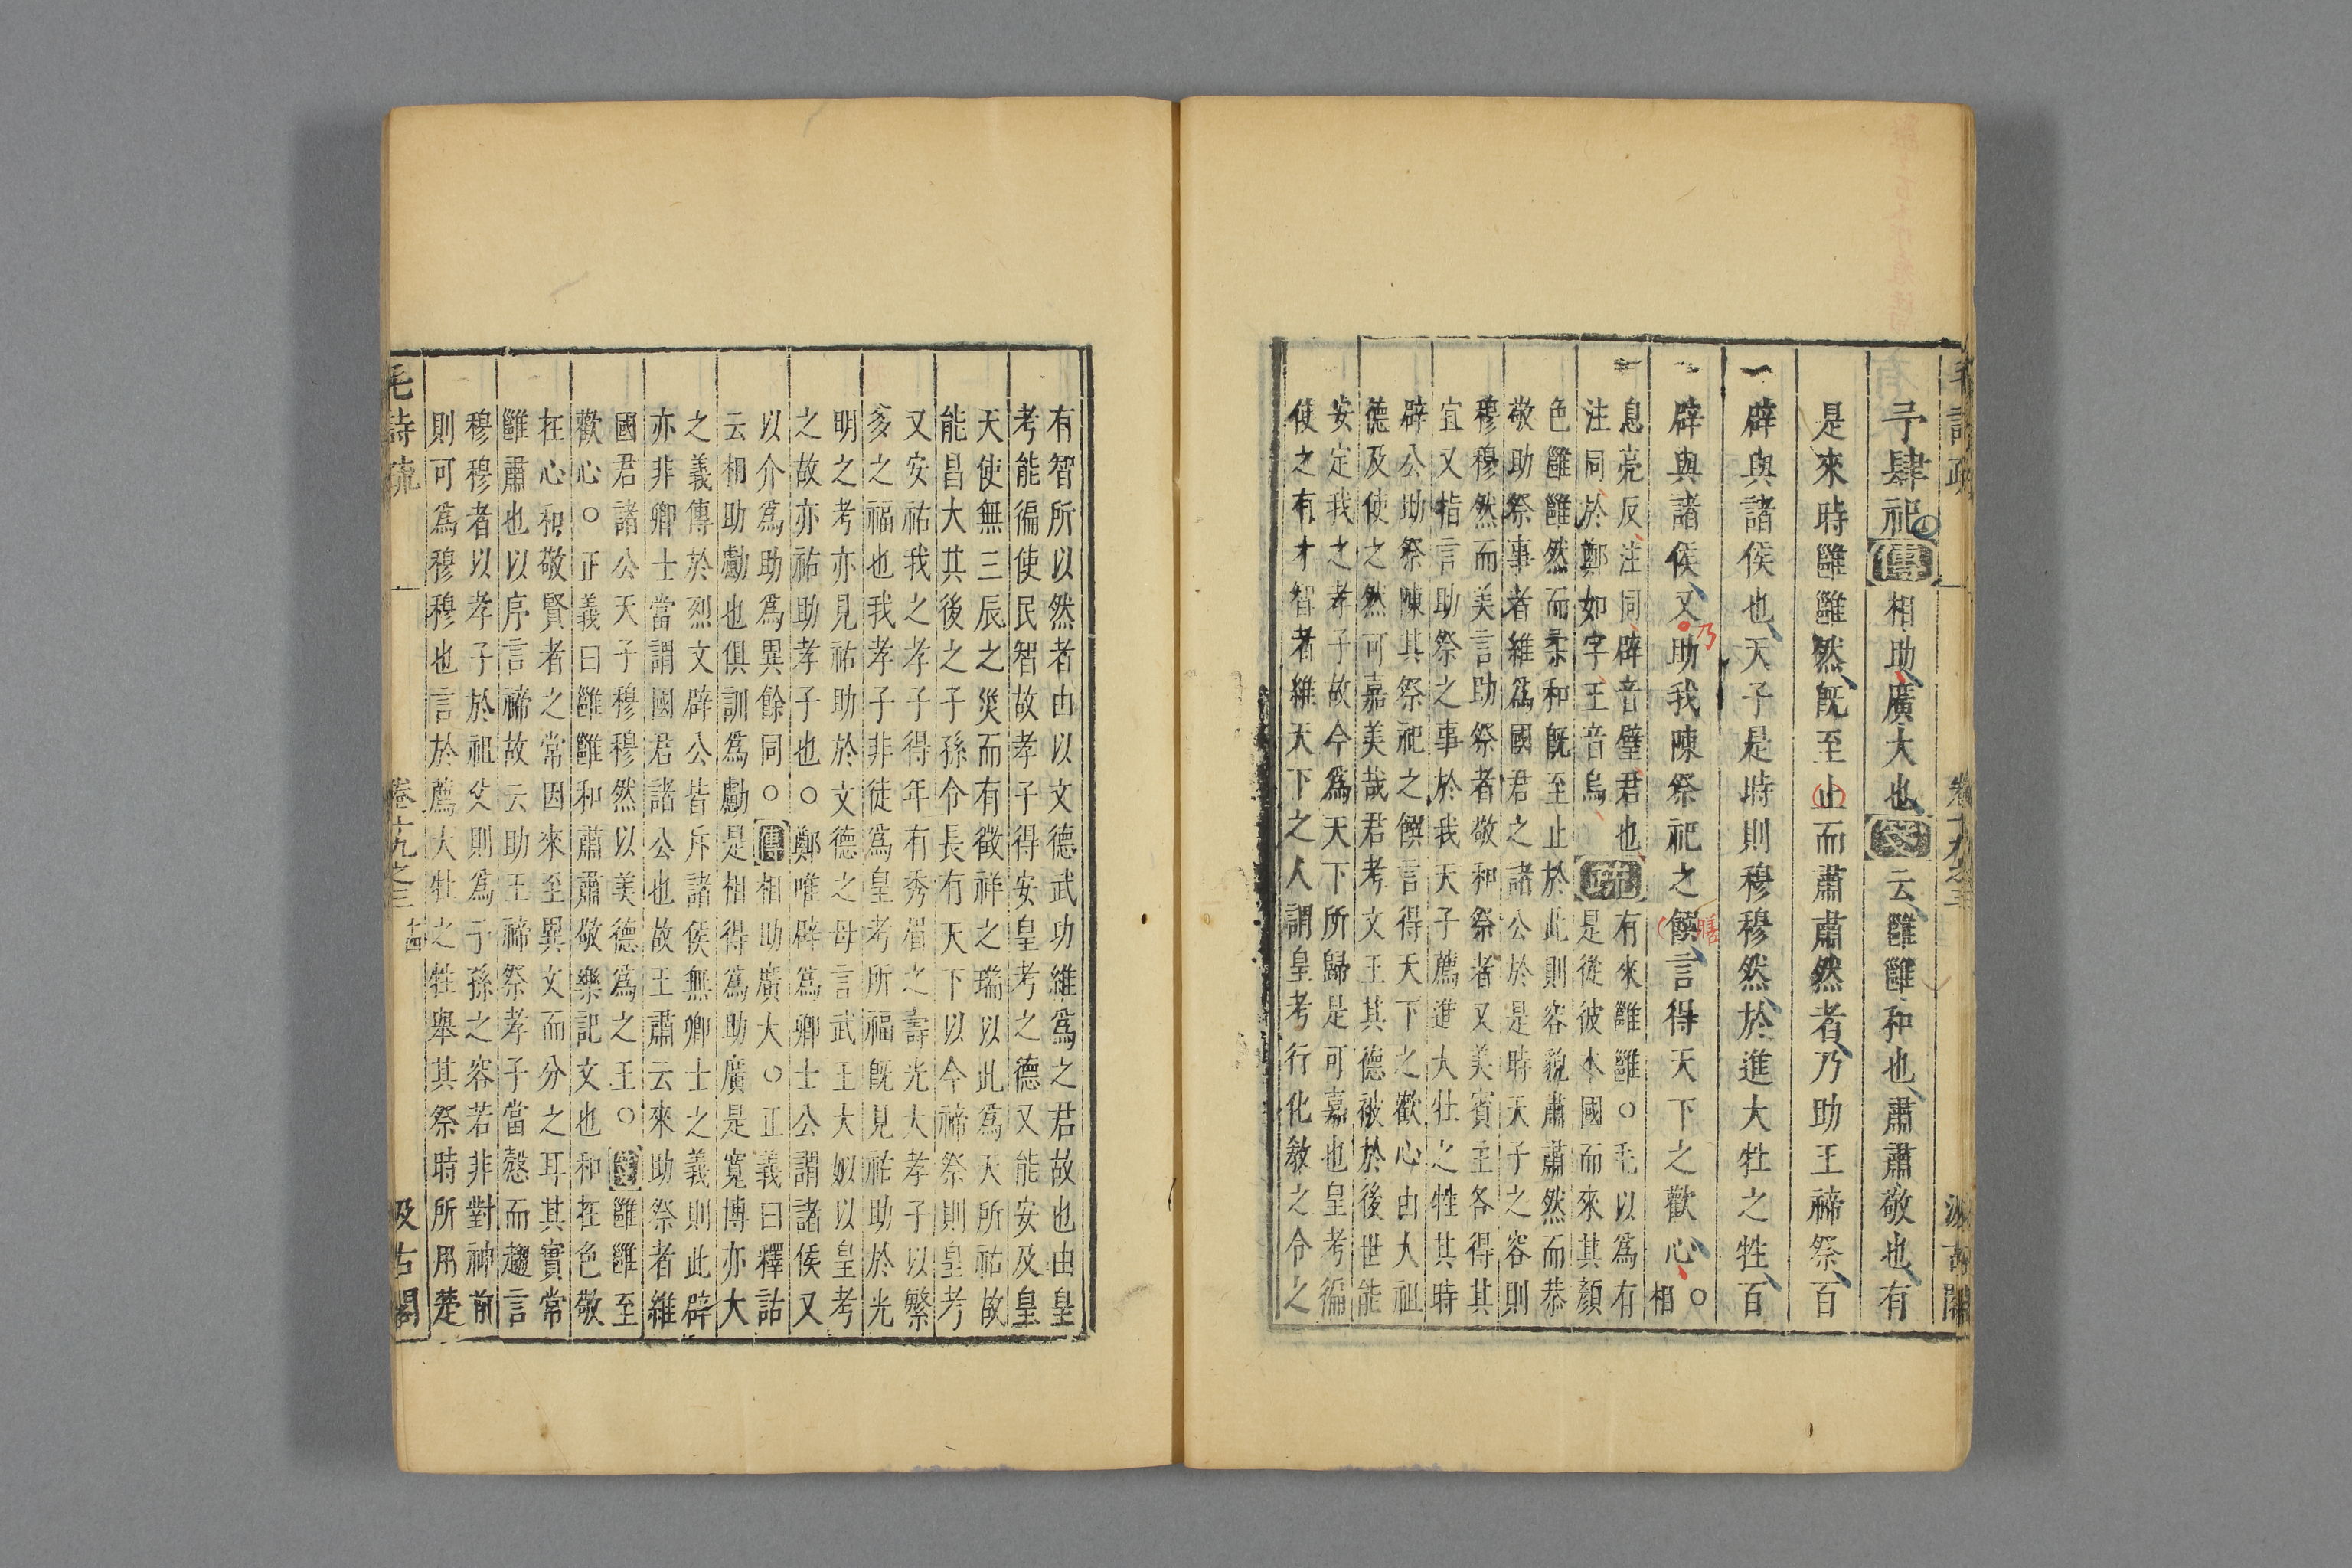 予肆祀傳相助廣大也箋云雝雝和也肅肅敬也有
是來時雝雝然旣至止而肅肅然者乃助王禘祭百
辟與諸侯也天子是時則穆穆然於進大牡之牲百
辟與諸侯又助我陳祭祀之饌言得天下之歡心○相
乃
膳
息亮反注同辟音璧君也
注同於鄭如字王音烏
疏
有來雝雝○毛以爲有
是從彼本國而來其顏
色雝雝然而柔和旣至止於此則容貌肅肅然而恭
敬助祭事者維爲國君之諸公於是時天子之容則
穆穆然而美言助祭者敬和祭者又美賓主各得其
宜又指言助祭之事於我天子薦進大牡之牲其時
辟公助祭陳其祭祀之饌言得天下之歡心由大祖
德及使之然可嘉美哉君考文王其德被於後世能
安定我之孝子故今爲天下所歸是可嘉也皇考徧
使之有才智者維天下之人謂皇考行化敎之令之
有智所以然者由以文德武功維爲之君故也由皇
考能徧使民智故孝子得安皇考之德又能安及皇
天使無三辰之災而有徵祥之瑞以此爲天所祐故
能昌大其後之子孫令長有天下以今禘祭則皇考
又安祐我之孝子得年有秀眉之壽光大孝子以繁
多之福也我孝子非徒爲皇考所福旣見祐助於光
明之考亦見祐助於文德之母言武王大姒以皇考
之故亦祐助孝子也○鄭唯辟爲卿士公謂諸侯又
以介爲助爲異餘同○傳相助廣大○正義曰釋詁
云相助勴也俱訓爲勴是相得爲助廣是寬博亦大
之義傳於烈文辟公皆斥諸侯無卿士之義則此辟
亦非卿士當謂國君諸公也故王肅云來助祭者維
國君諸公天子穆穆然以美德爲之王○箋雝雝至
歡心○正義曰雝雝和肅肅敬樂記文也和在色敬
在心和敬賢者之常因來至異文而分之耳其實常
雝肅也以序言禘故云助王禘祭孝子當慤而趨言
穆穆者以孝子於祖父則爲子孫之容若非對神前
則可爲穆穆也言於薦大牡之牲舉其祭時所用楚
毛詩疏 卷十九之三 十四 汲古閣